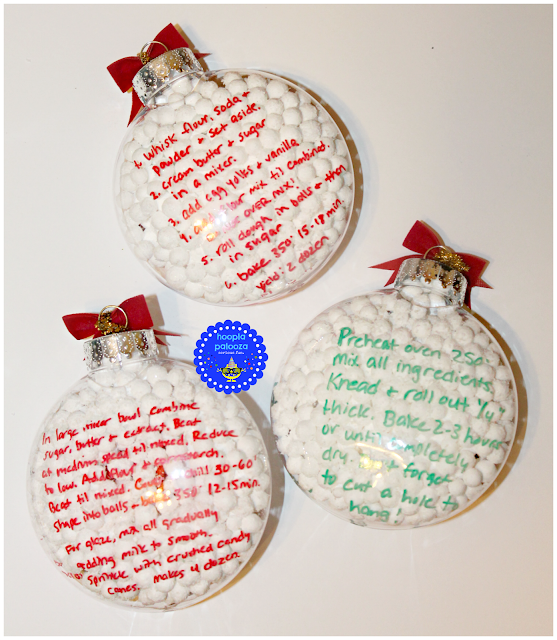 1. Whisk flour, soda +
powder + set aside.
2. cream butter + sugar
in a mixer.
3. add egg yolks + vanilla
4. flour mix til combined.
OVER MIX!
5. roll dough in balls + then
in sugar
6. bake 350° 15-18 min.
yield: 2 dozen
hoopla
palooza
Preheat oven 250°
mix all ingredients
Knead + roll out 1/4"
thick. Bake 2-3 hours
or until completely
dry. forget
to cut a hole to
hang!
In large mixer bowl combine
sugar, butter + extract. Beat
at medium speed til mixed. Reduce
to low. Add flour +
Beat til mixed. 30-60
shape into balls + 350° 12-15 min.
For glaze, mix all gradually
adding milk to smooth.
sprinkle with crushed candy
canes. makes 4 dozen